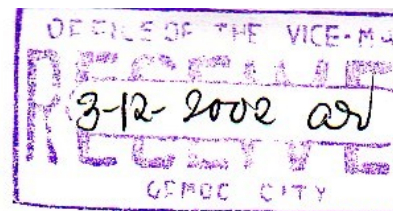 OFFICE OF THE VICE-MA
RECEIVE
3-12-2002
RECEIVE
CITY